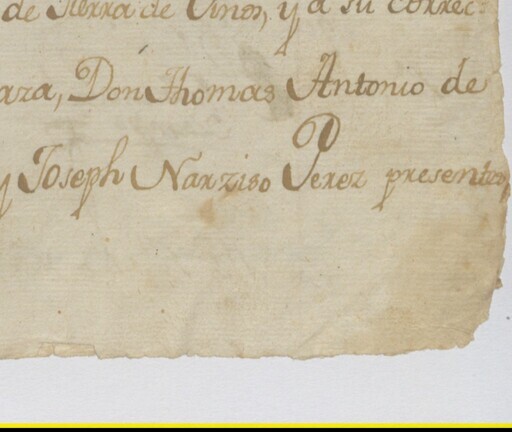 de Tierra de Vinos, y a su correc=
ara, Don Thomas Antonio de
y Joseph Narziso Perez presentes,